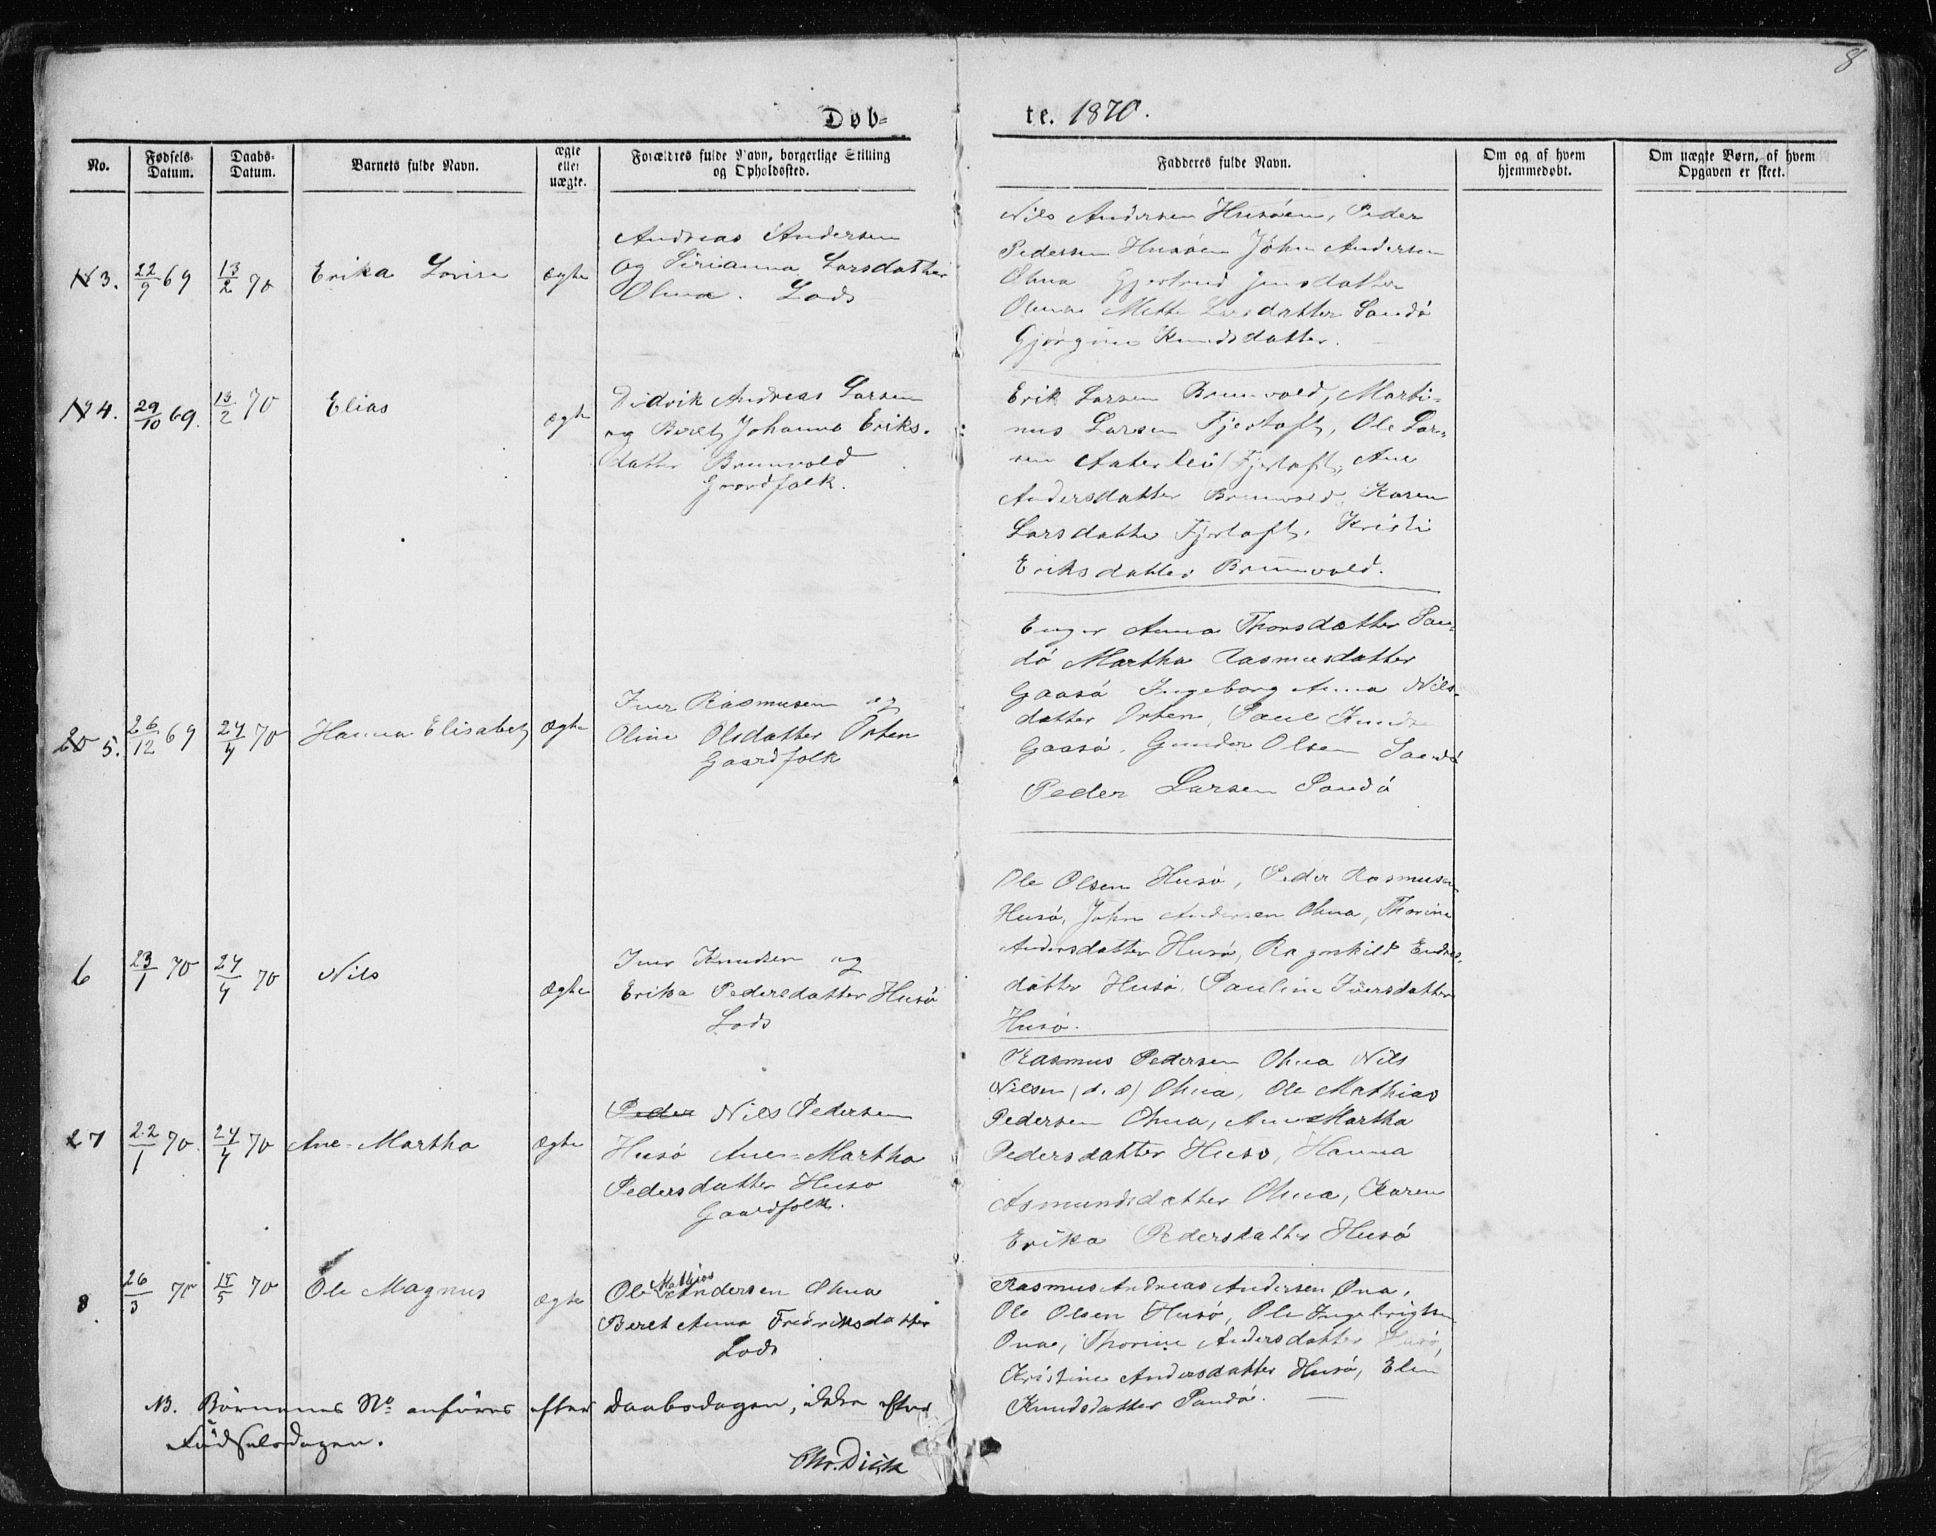 8
Døb-
te. 1870.
No.
Fødsels-
Datum.
Daabs-
Datum.
Barnets fulde Navn.
ægte
eller
uægte.
Forældres fulde Navn, borgerlige Stilling
og Opholdssted.
Fadderes fulde Navn.
Om og af hvem
hjemmedøbt.
Om uægte Børn, af hvem
Opgaven er skeet.
3. 22/9 69 13/2 70 Erika Lovise ægte
Andreas Andersen
og Sirianna Larsdatter
Ohna. Lods
Nils Andersen Husøen, Peder
Pedersen Husøen John Andersen
Ohna Gjertrud Jensdatter
Ohna Mette Larsdatter Sandø
Gjørgine Knudsdatter.
4. 29/10 69. 13/2 70 Elias ægte
Didrik Andreas Larsen
og Beret Johanna Eriks-
datter Brunvold
Gaardfolk.
Erik Larsen Brunvold, Marti-
nus Larsen Fjertoft, Ole Lar-
sen Fjertoft, Ane
Andersdatter Brunvold, Karen
Larsdatter Fjertoft, Kristi
Eriksdatter Brunvold.
5. 26/12 69 24/4 70 Hanna Elisabet ægte
Iver Rasmusen og
Oline Olsdatter Orten
Gaardfolk
Enger Anna Thorsdatter San-
dø Martha Rasmusdatter
Gaasø Ingeborg Anna Nils-
datter Orten, Paul Knuds
Gaasø, Gunder Olsen Sandø
Peder Larsen Sandø
6 23/1 70 24/4 70 Nils ægte
Iver Knudsen og
Erika Pedersdatter Husø
Lods
Ole Olsen Husø, Peder Rasmusen
Husø, John Andersen Ohna, Thorine
Andersdatter Husø, Ragnhild Endres-
datter Husø, Pauline Iversdatter
Husø.
7 22/1 70. 24/4 70 Ane-Martha ægte
Peder Nils Pedersen
Husø Ane-Martha
Pedersdatter Husø
Gaardfolk.
Rasmus Pedersen Ohna Nils
Nilsen (d. æ) Ohna, Ole Mathias
Pedersen Ohna, Ane Martha
Pedersdatter Husø, Hanna
Asmundsdatter Ohna, Karen
Erika Pedersdatter Husø
8 26/3 70 15/5 70 Ole Magnus ægte
Ole Mathias Andersen Ohna
Beret Anna Fredriksdatter
Lods
Rasmus Andreas Andersen Ona,
Ole Olsen Husø, Ole Ingebrigtsen
Ona, Thorine Andersdatter Husø,
Kristine Andersdatter Husø, Elen
Knudsdatter Sandø.
NB. Børnenes No anføres efter Daabsdagen, ikke efter
Fødselsdagen.
Chr. Dick